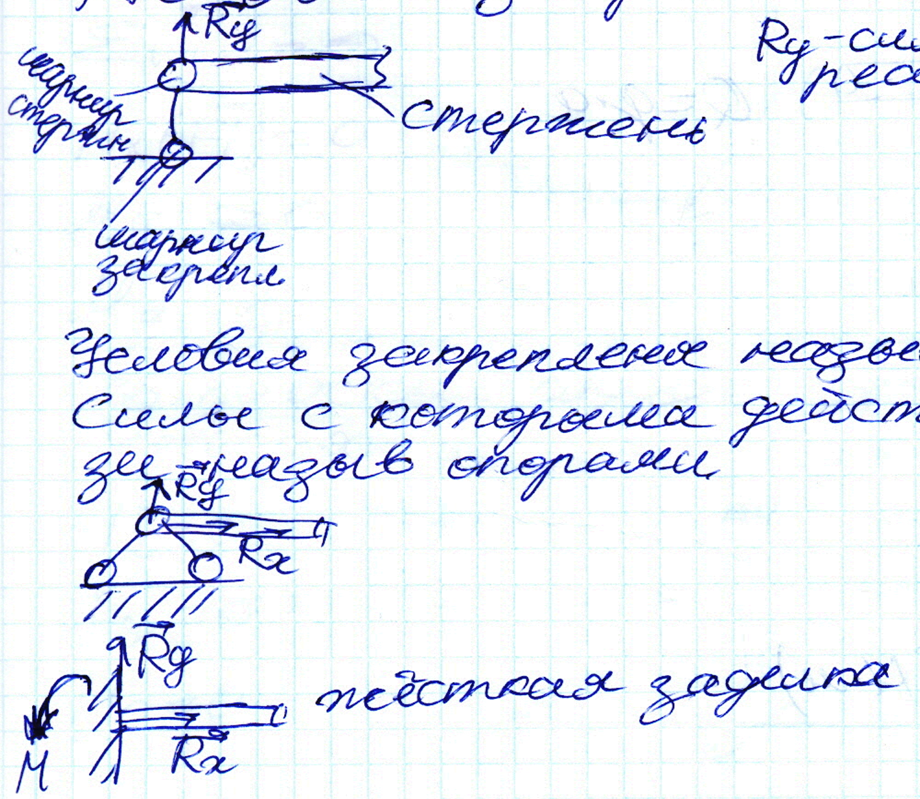 Ry
Ry-сил
реа
шарнир
стержн
стержень
шарнир
закрепл.
Условия закрепленя назыв
Силы с которыми дейст
зи назыв опорами.
Ry
Rx
Ry
жёсткая заделка
M
Rx